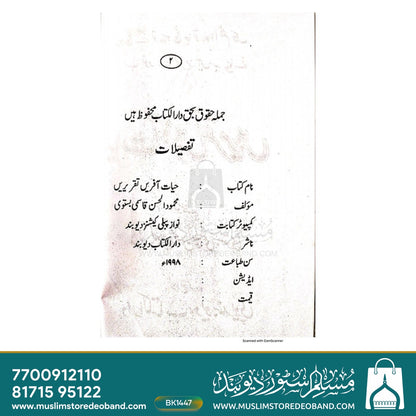 ۲
جملہ حقوق بحق دارالکتاب محفوظ ہیں
تفصیلات
نام کتاب : حیات آفریں تقریریں
مؤلف : محمود الحسن قاسمی بستوی
کمپیوٹر کتابت : نواز پبلی کیشنز دیوبند
ناشر : دارالکتاب دیوبند
سن طباعت : ۱۹۹۸ء
ایڈیشن :
قیمت :
Scanned with CamScanner
7700912110
81715 95122
www.muslimstoredeoband.com
BK1447
مسلم سٹور دیوبند
www.MUSLIMSTOREDEOBAND.COM